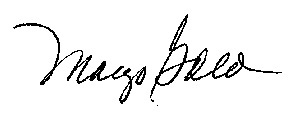 Margo Gold